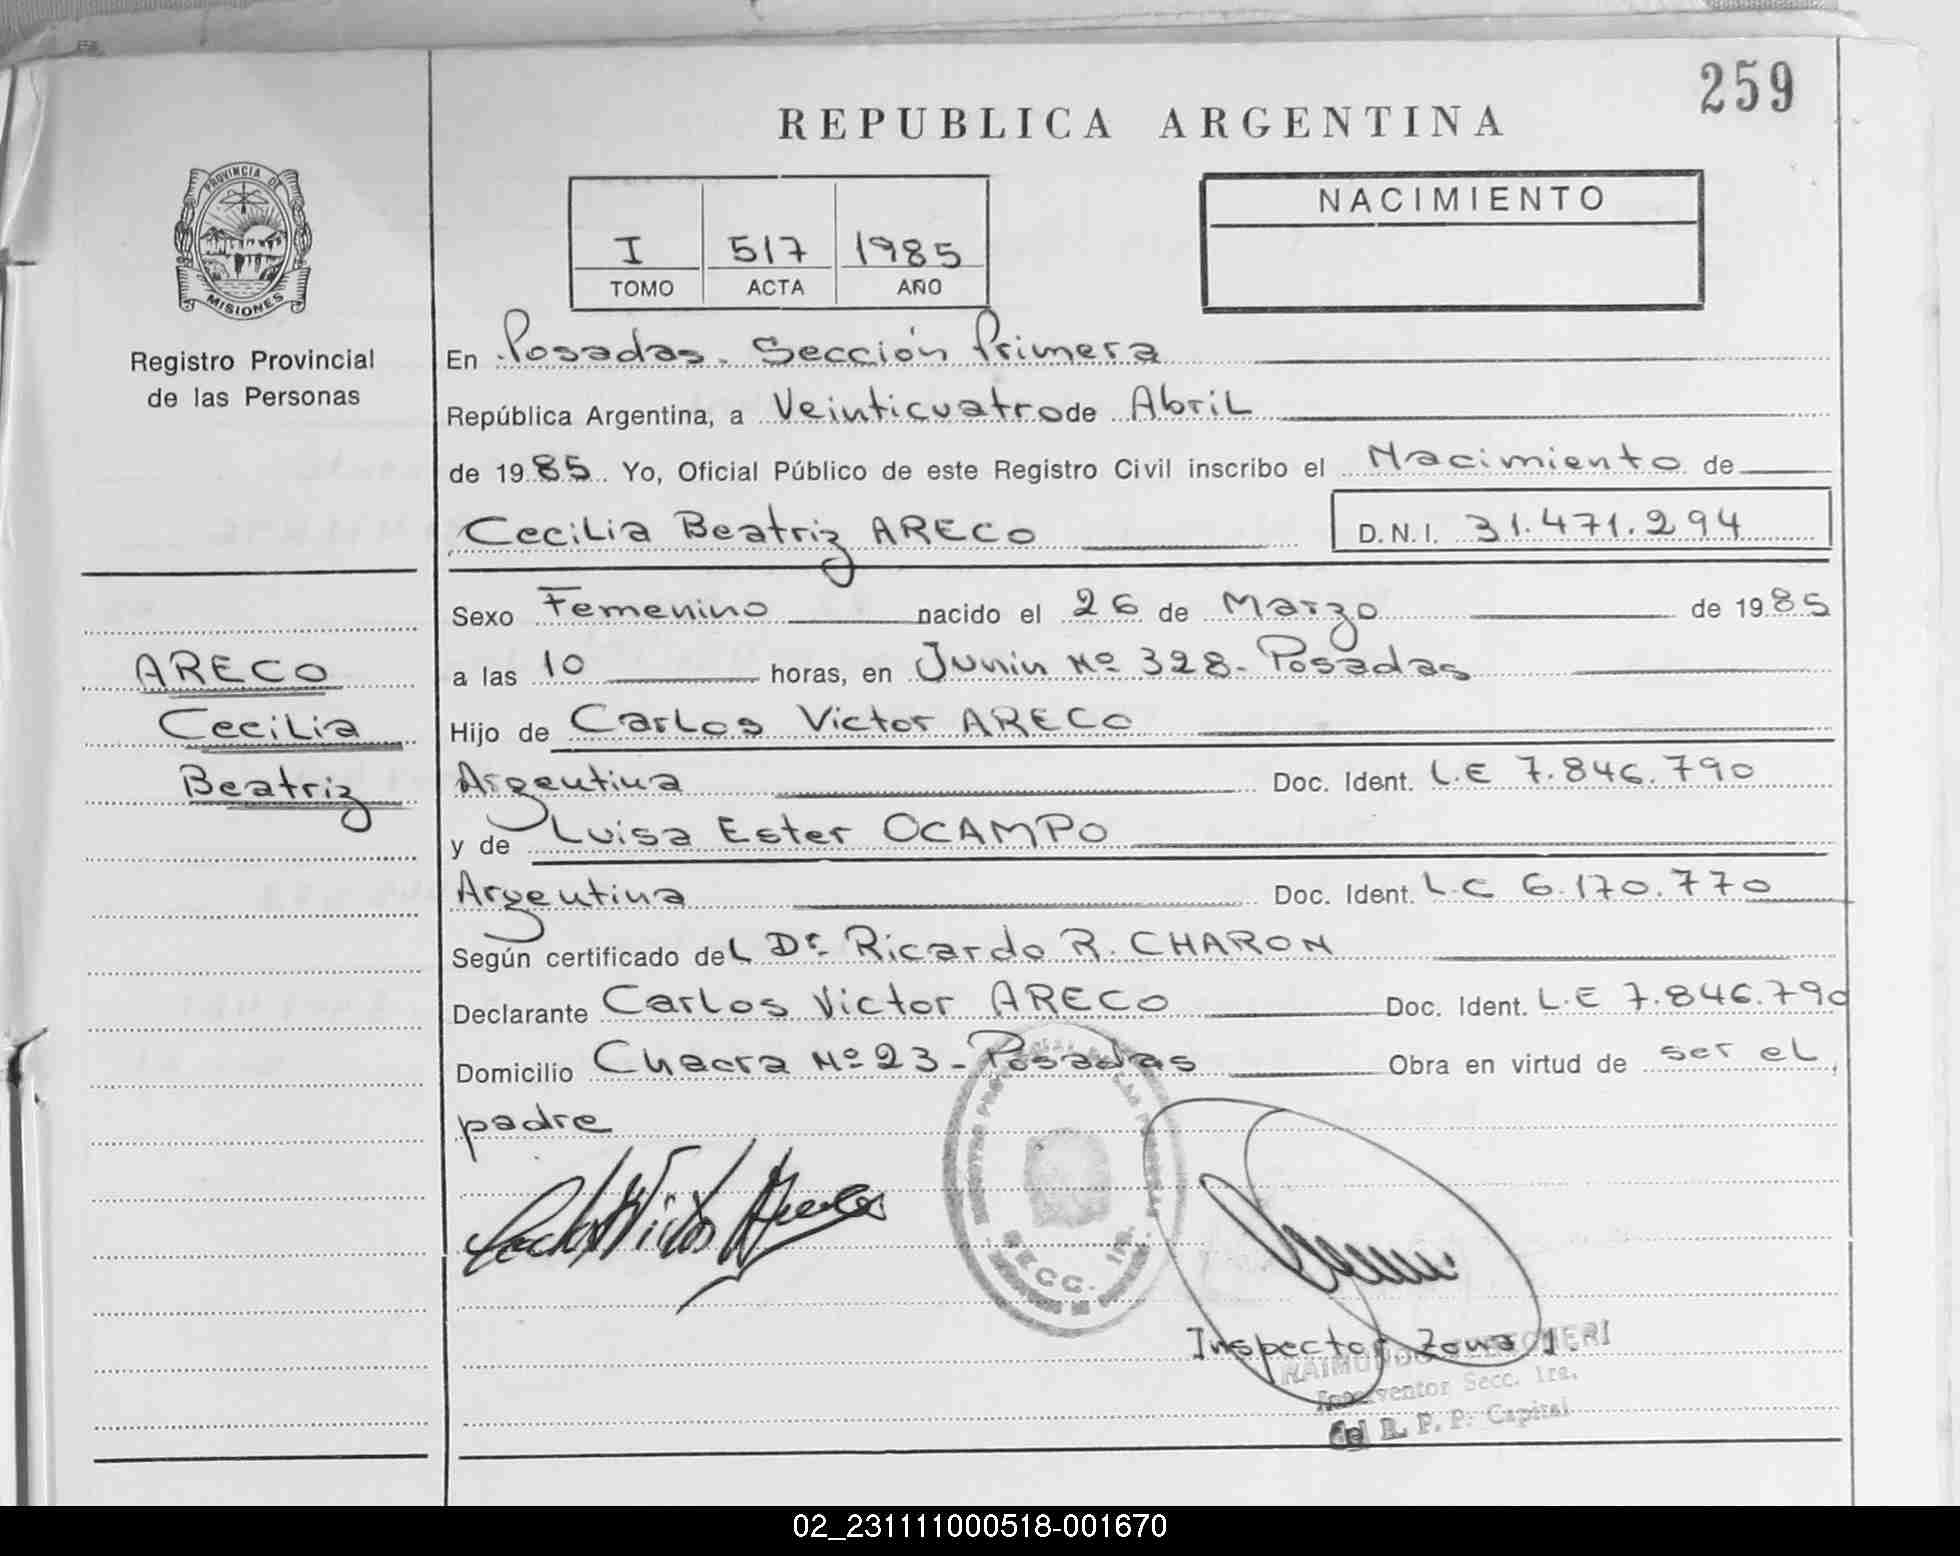 259
REPUBLICA ARGENTINA
PROVINCIA DE
MISIONES
Registro Provincial
de las Personas
I 517 1985
TOMO ACTA AÑO
NACIMIENTO
En Posadas. Sección Primera
República Argentina, a Veinticuatro de Abril
de 1985 Yo, Oficial Público de este Registro Civil inscribo el Nacimiento de
Cecilia Beatriz ARECO D.N.I. 31.471.294
Sexo Femenino nacido el 26 de Marzo de 1985
a las 10 horas, en Junin Nº 328- Posadas
Hijo de Carlos Victor ARECO
Argentina Doc. Ident. L.E 7.846.790
y de Luisa Ester OCAMPO
Argentina Doc. Ident. L.C 6.170.770
Según certificado del Dr. Ricardo R. CHARON
Declarante Carlos Victor ARECO Doc. Ident. L.E 7.846.790
Domicilio Chacra Nº 23- Posadas Obra en virtud de ser el
padre
ARECO
Cecilia
Beatriz
Carlos Victor Areco
SECC. 1ra.
Inspector Zona 1.
RAIMUNDO
Interventor Secc. 1ra.
del R. P. P. Capital
02_231111000518-001670